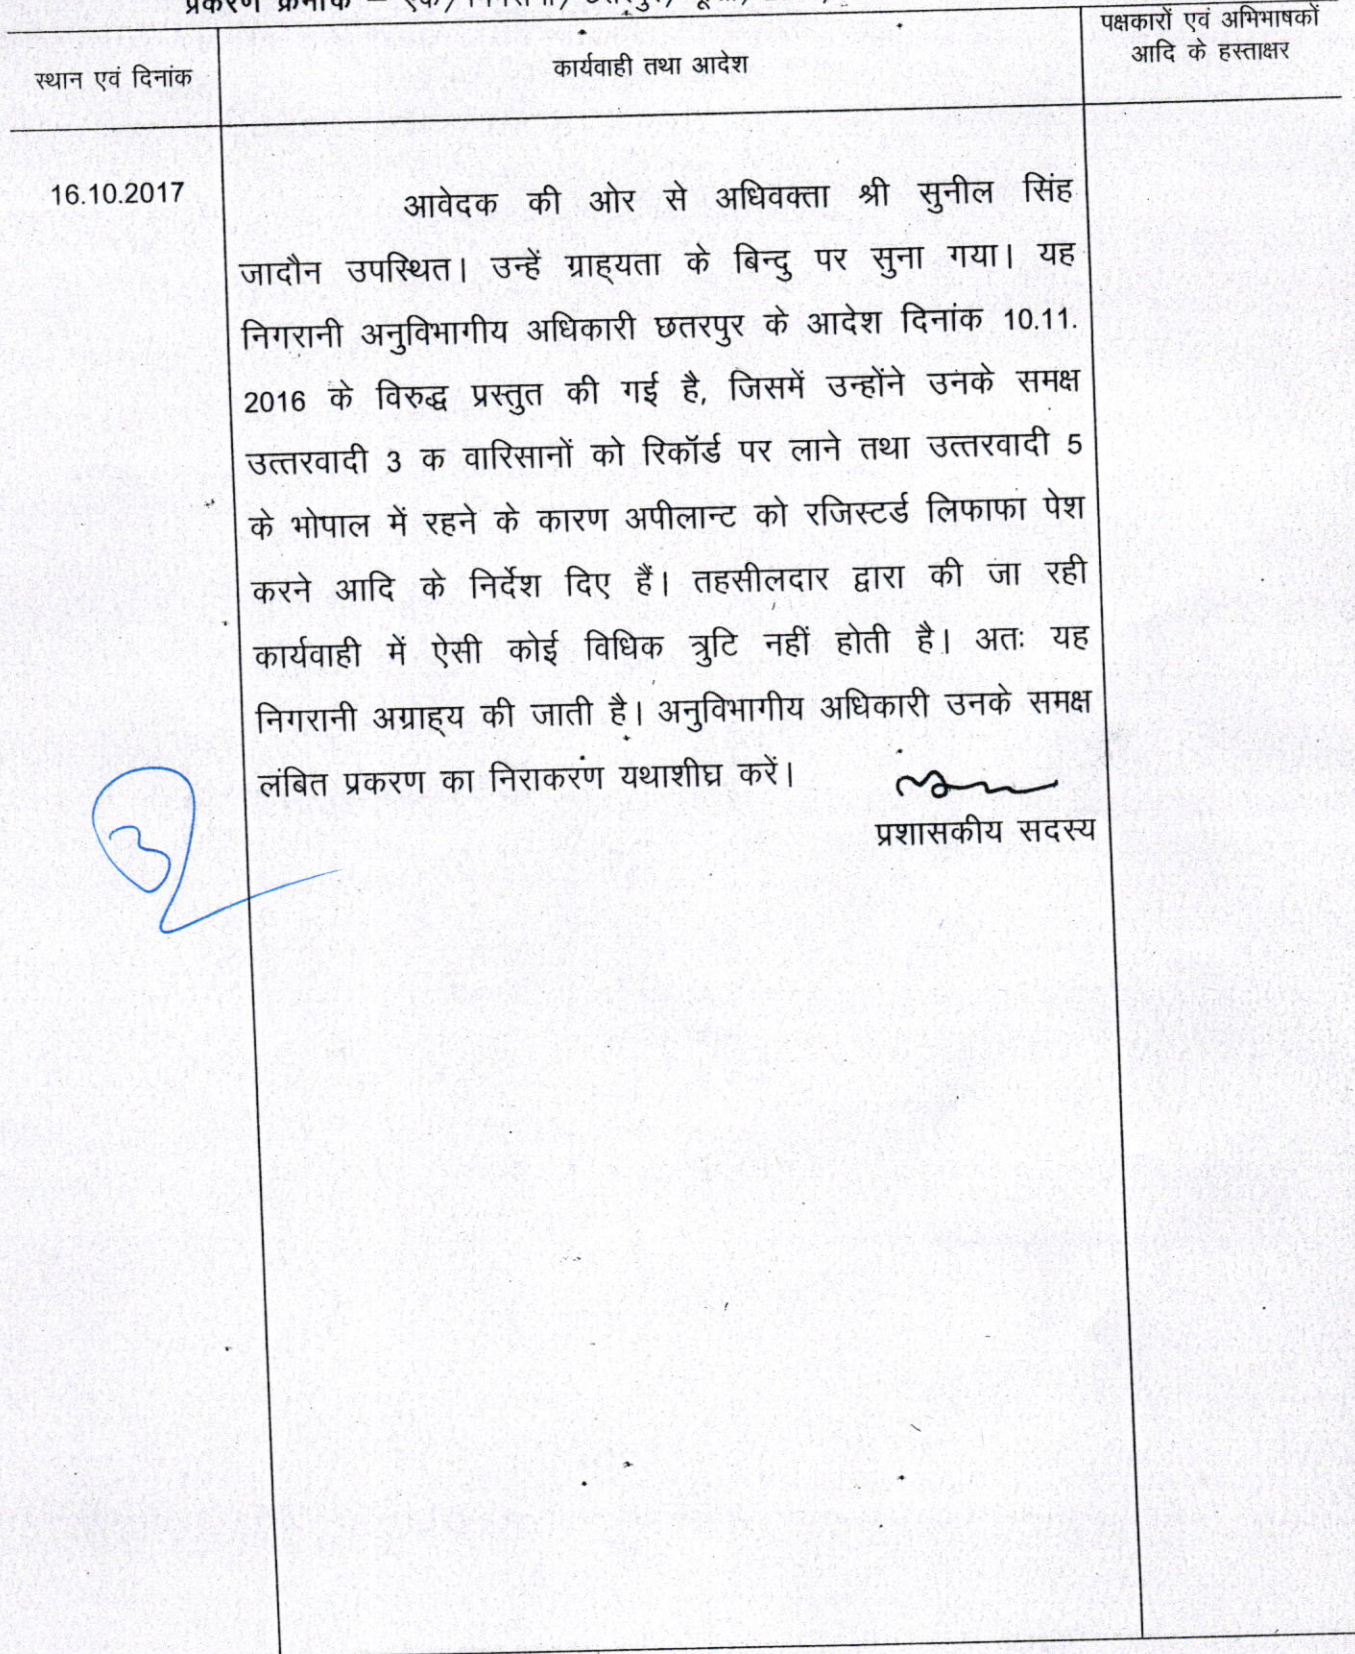 प्रकरण क्रमांक –
स्थान एवं दिनांक
कार्यवाही तथा आदेश
पक्षकारों एवं अभिभाषकों
आदि के हस्ताक्षर
16.10.2017
आवेदक की ओर से अधिवक्ता श्री सुनील सिंह
जादौन उपस्थित। उन्हें ग्राह्यता के बिन्दु पर सुना गया। यह
निगरानी अनुविभागीय अधिकारी छतरपुर के आदेश दिनांक 10.11.
2016 के विरुद्ध प्रस्तुत की गई है, जिसमें उन्होंने उनके समक्ष
उत्तरवादी 3 क वारिसानों को रिकॉर्ड पर लाने तथा उत्तरवादी 5
के भोपाल में रहने के कारण अपीलान्ट को रजिस्टर्ड लिफाफा पेश
करने आदि के निर्देश दिए हैं। तहसीलदार द्वारा की जा रही
कार्यवाही में ऐसी कोई विधिक त्रुटि नहीं होती है। अतः यह
निगरानी अग्राह्य की जाती है। अनुविभागीय अधिकारी उनके समक्ष
लंबित प्रकरण का निराकरण यथाशीघ्र करें।
प्रशासकीय सदस्य